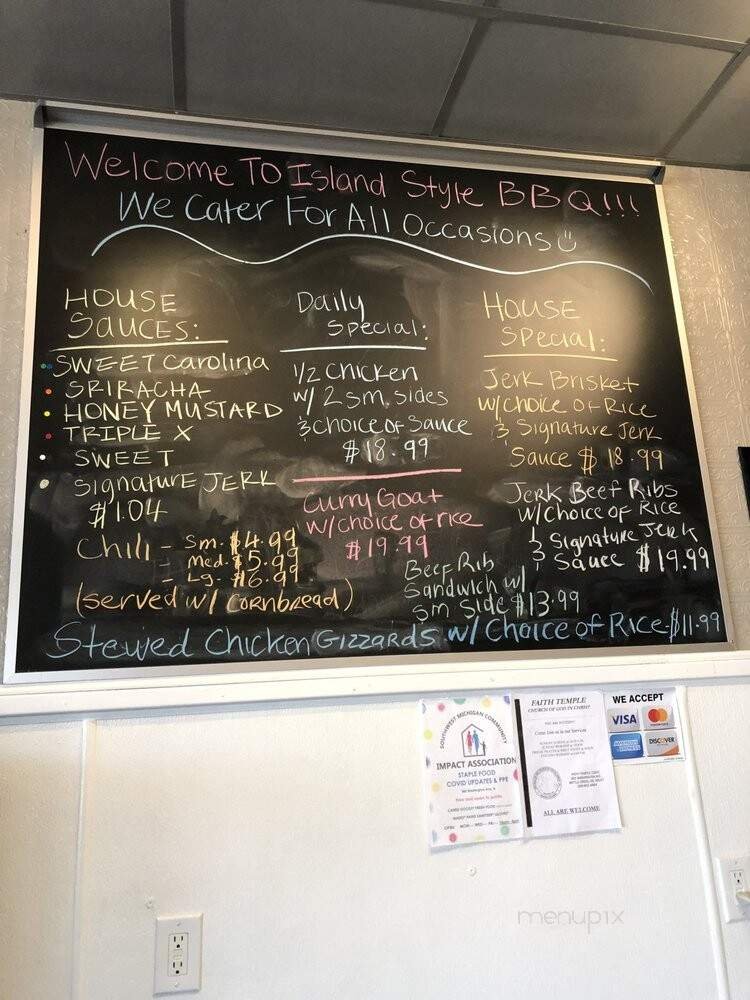 Welcome To Island Style BBQ!!!
We Cater For All Occasions
HOUSE
SAUCES:
SWEET Carolina
SRIRACHA
HONEY MUSTARD
TRIPLE X
SWEET
Signature JERK
$1.04
Chili - Sm. $4.99
- Med. $5.99
- Lg. $6.99
(served w/ cornbread)
Daily
Special:
1/2 chicken
w/ 2 sm. sides
& choice of sauce
$18.99
Curry Goat
w/choice of rice
$19.99
House
Special:
Jerk Brisket
w/choice of Rice
& Signature Jerk
Sauce $18.99
Jerk Beef Ribs
w/Choice of Rice
& Signature Jerk
Sauce $19.99
Beef Rib
Sandwich w/
sm side $13.99
Stewed Chicken Gizzards w/ Choice of Rice-$11.99
SOUTHWEST MICHIGAN COMMUNITY
IMPACT ASSOCIATION
STAPLE FOOD
COVID UPDATES & PPE
FAITH TEMPLE
CHURCH OF GOD IN CHRIST
ALL ARE WELCOME
WE ACCEPT
VISA
MasterCard
AMERICAN EXPRESS
DISCOVER
menupix